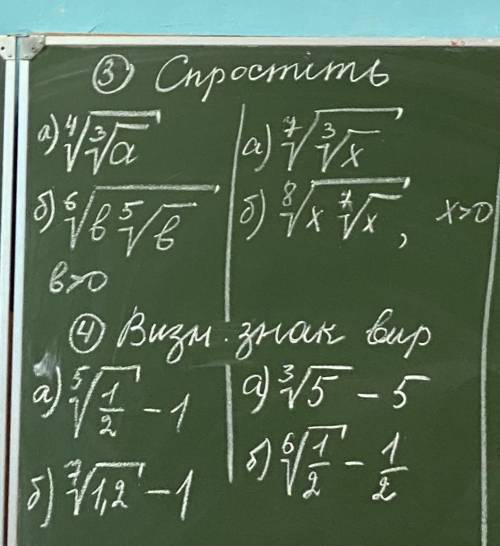 ③ Спростіть
а) ⁴√(³√a)
б) ⁶√(b ⁵√b)
b>0
а) ⁷√(³√x)
б) ⁸√(x ⁷√x), x>0
④ Визн. знак вир
а) ⁵√(1/2) - 1
б) ⁷√(1,2) - 1
а) ³√5 - 5
б) ⁶√(1/2) - 1/2